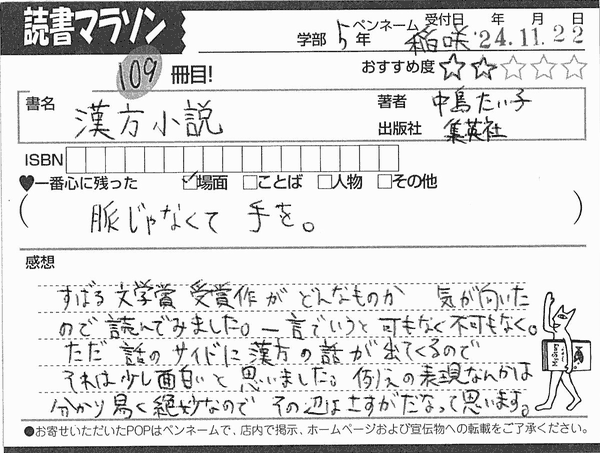 読書マラソン
学部 5年 ペンネーム 稲咲 受付日 '24年11月22日
109冊目!
おすすめ度 ★★☆☆☆
書名 漢方小説
著者 中島たい子
出版社 集英社
ISBN
♥一番心に残った ☑場面 □ことば □人物 □その他
( 脈じゃなくて 手を。 )
感想
すばる文学賞 受賞作が どんなものか 気が向いた
ので 読んでみました。一言でいうと 可もなく不可もなく。
ただ 話の サイドに 漢方の 話が 出てくるので
それは少し面白いと思いました。例えの表現なんかは
分かり易く絶妙なので その辺はさすがだなって思います。
●お寄せいただいたPOPはペンネームで、店内で掲示、ホームページおよび宣伝物への転載をご了承ください。